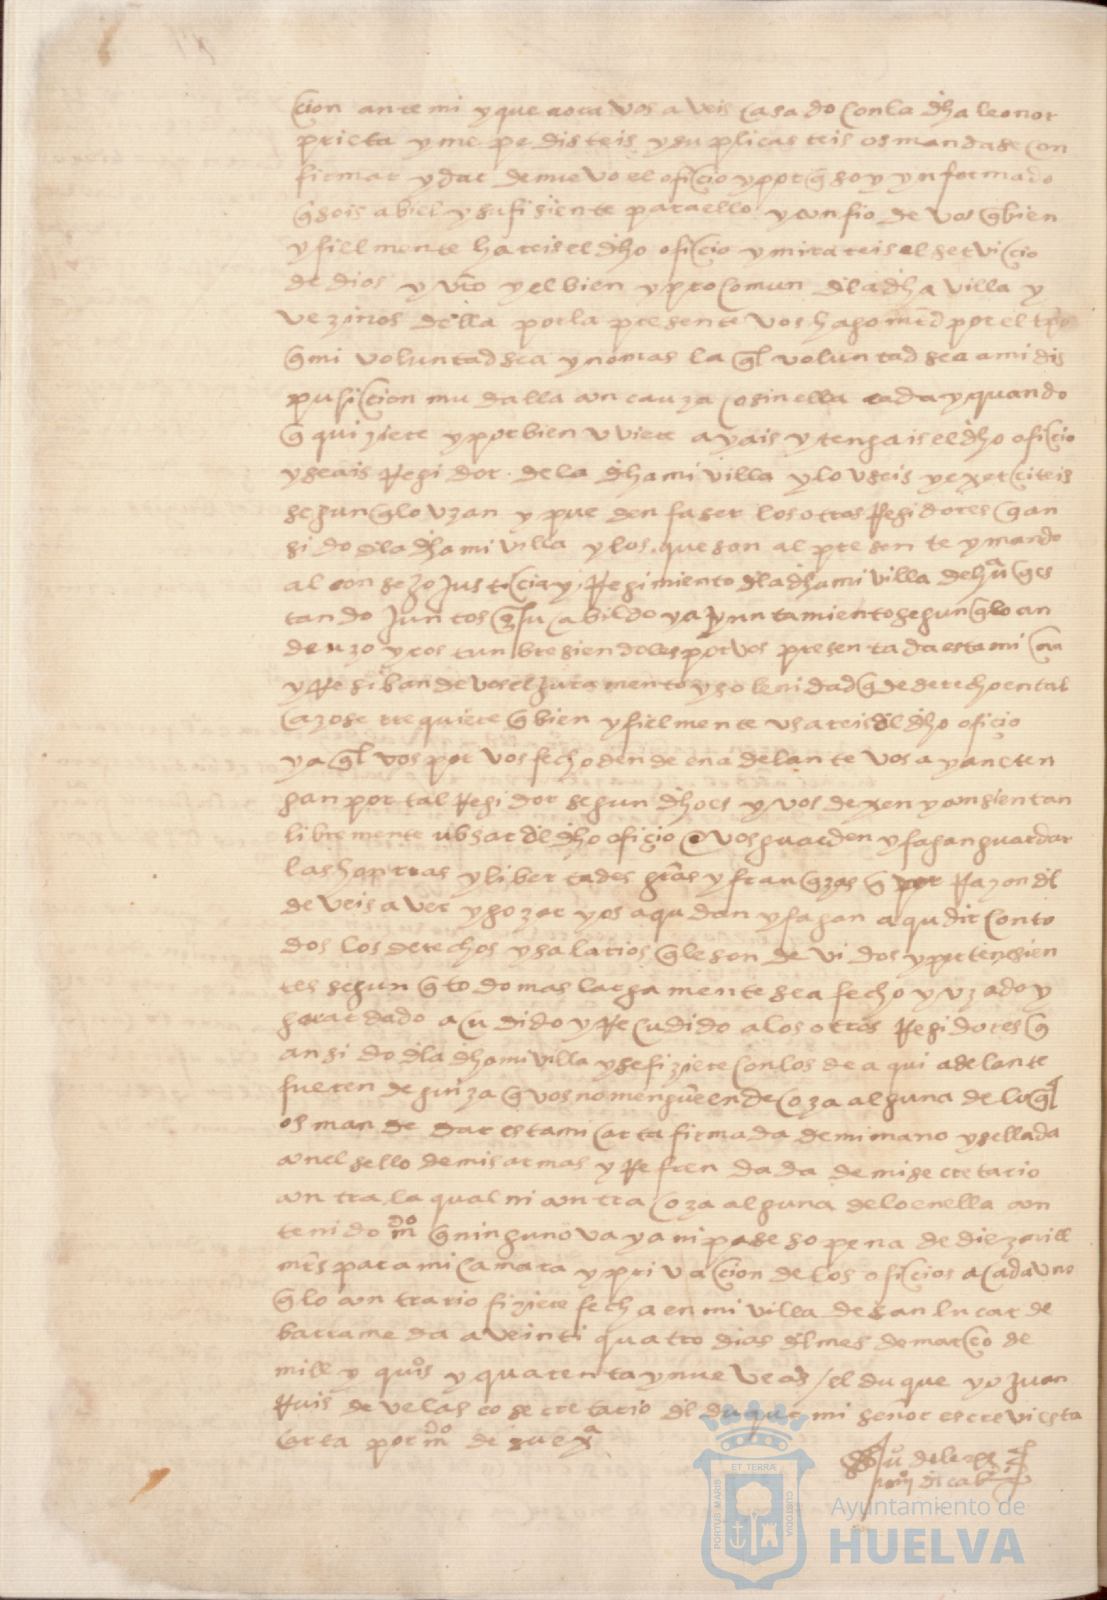 cion ante mi y que aora vos aveis casado con la dha leonor
prieta y me pedisteis y suplicasteis os mandase con
firmar y dar de nuevo el oficio y por q̃ soy ynformado
q̃ sois abiel y sufisiente para ello y confio de vos q̃ bien
y fielmente hareis el dho oficio y mirareis el servicio
de dios y vr̃o y el bien y procomun dla dha villa y
vezinos della por la presente vos hago mrd por el tpo
q̃ mi voluntad sea y no mas la ql voluntad sea a mi dis
pusicion mudalla con cauza o sin ella cada y quando
q̃ quiziere y por bien uviere ayais y tengais el dho oficio
y seais Regidor de la dha mi villa y lo useis y exerciteis
segun q̃ lo uzan y pueden faser los otros Regidores q̃ an
sido dla dha mi villa y los que son al presente y mando
al consezo justicia y Regimiento dla dha mi villa de hua q̃ es
tando juntos en su cabildo y ayuntamiento segun q̃ lo an
de uzo y costunbre siendoles por vos presentada esta mi
y Resiban de vos el juramento y solenidad q̃ de derecho en tal
cazo se rrequiere q̃ bien y fielmente usareis dl dho oficio
y a ql vos por vos fecho dende en adelante vos ayan e ten
gan por tal Regidor segun dho es y vos dexen y consientan
libremente ubsar dl dho oficio e vos guarden y fagan guardar
las honrras y libertades gras y franqzas q̃ por Razon dl
deveis aver y gozar y os aqudan y fagan aqudir con to
dos los derechos y salarios q̃ le son devidos y pertenesien
tes segun q̃ todo mas largamente sea fecho y uzado y
guardado acudido y Recudido a los otros Regidores q̃
an sido dla dha mi villa y se fiziere con los de aqui adelante
fueren de guiza q̃ vos no mengue ende coza alguna de lo ql
os mande dar esta mi carta firmada de mi mano y sellada
con el sello de mis armas y Refrendada de mi secretario
contra la qual ni contra coza alguna de lo en ella con
tenido mdo q̃ ninguno vaya ni pase so pena de diez mill
mrs para mi camara y privacion de los oficios a cada uno
q̃ lo contrario fiziere fecha en mi villa de san lucar de
barrameda a veinti quatro dias dl mes de março de
mill y quis y quarenta y nueve as / el duque yo juan
Ruis de velasco secretario dl duque mi señor escrevi esta
carta por mdo de su exa
Ayuntamiento de
HUELVA
PORTUS MARIS
ET TERRÆ
CUSTODIA